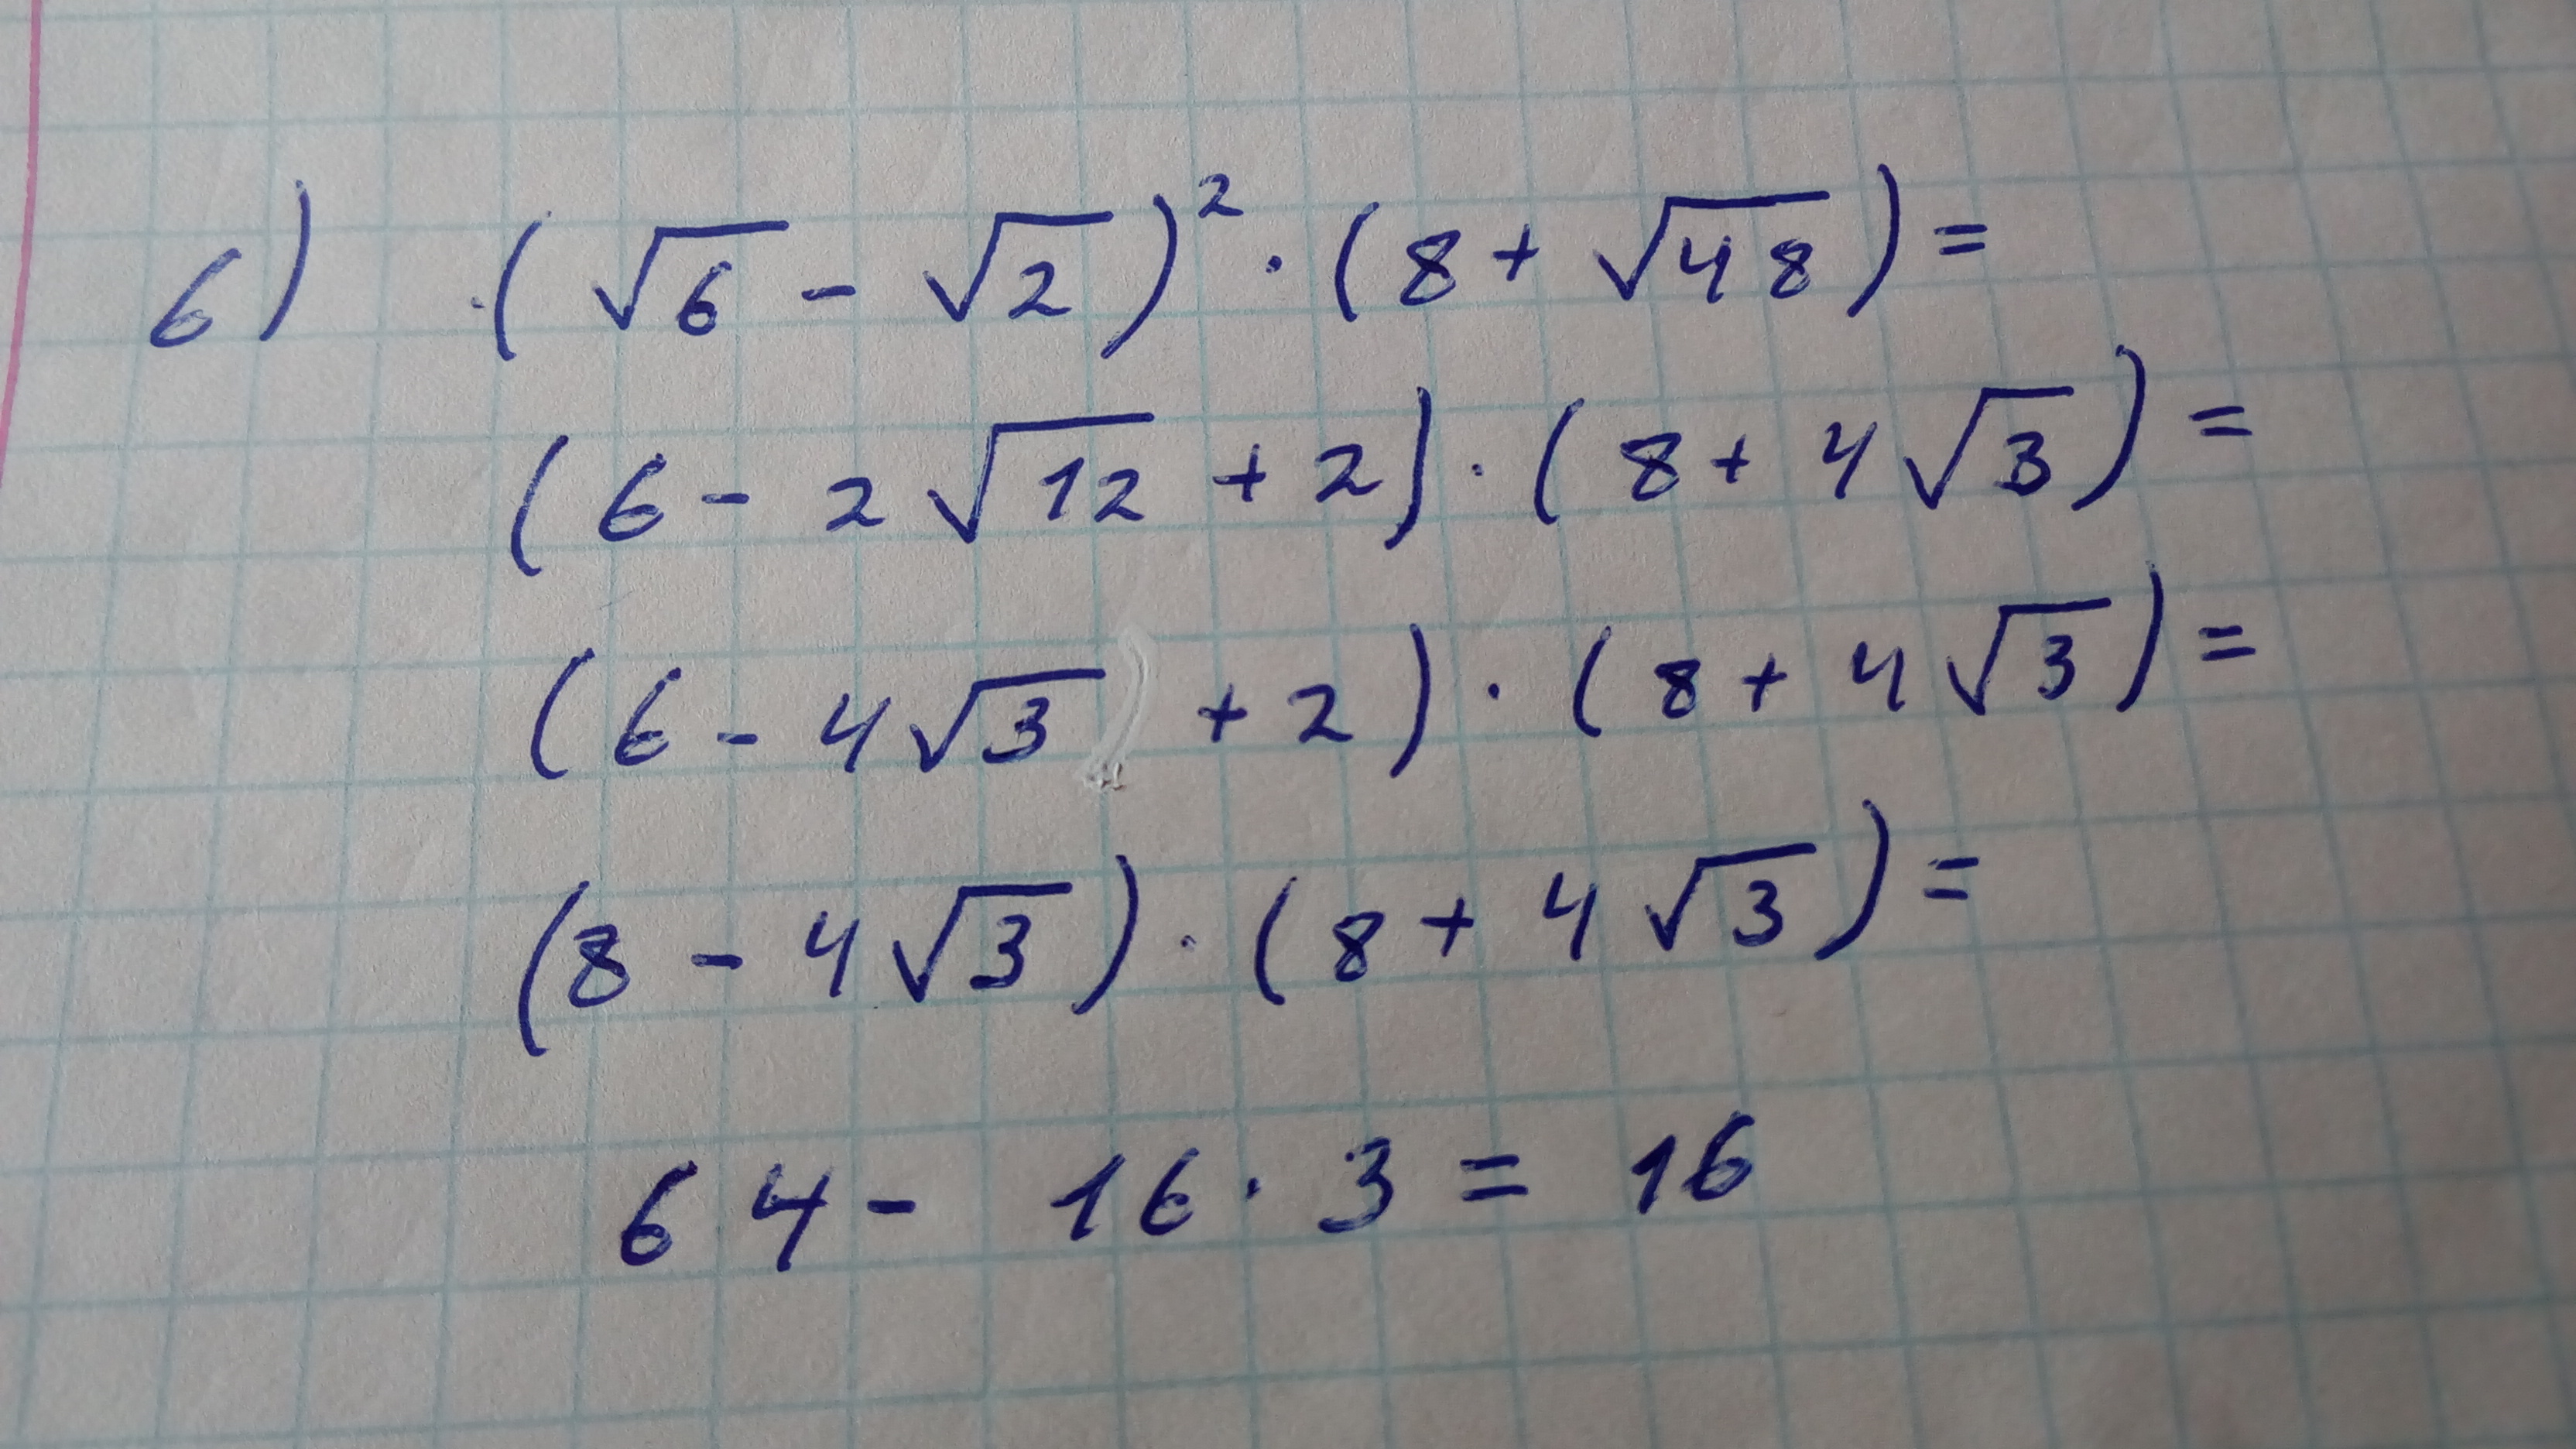 6) (√6 - √2)² · (8 + √48) =
(6 - 2√12 + 2) · (8 + 4√3) =
(6 - 4√3 + 2) · (8 + 4√3) =
(8 - 4√3) · (8 + 4√3) =
64 - 16 · 3 = 16